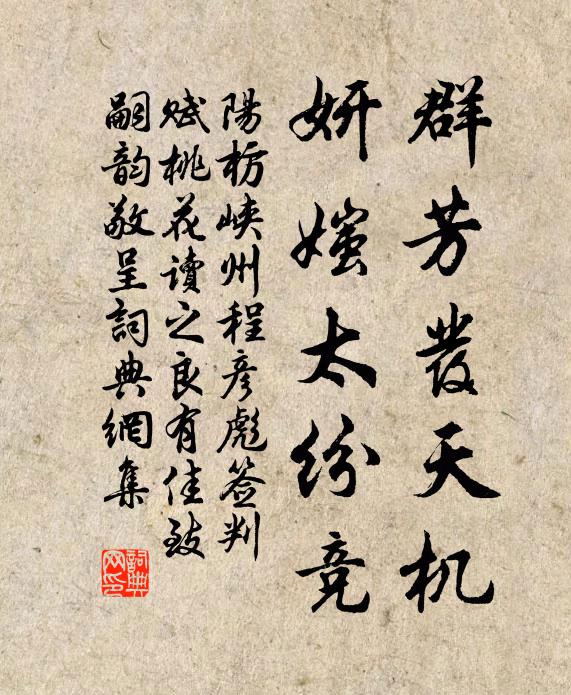 群芳发天机
妍媸太纷竞
陽枋峡州程彦彪签判
赋桃花读之良有佳致
嗣韵敬呈詞典網集
詞典网印